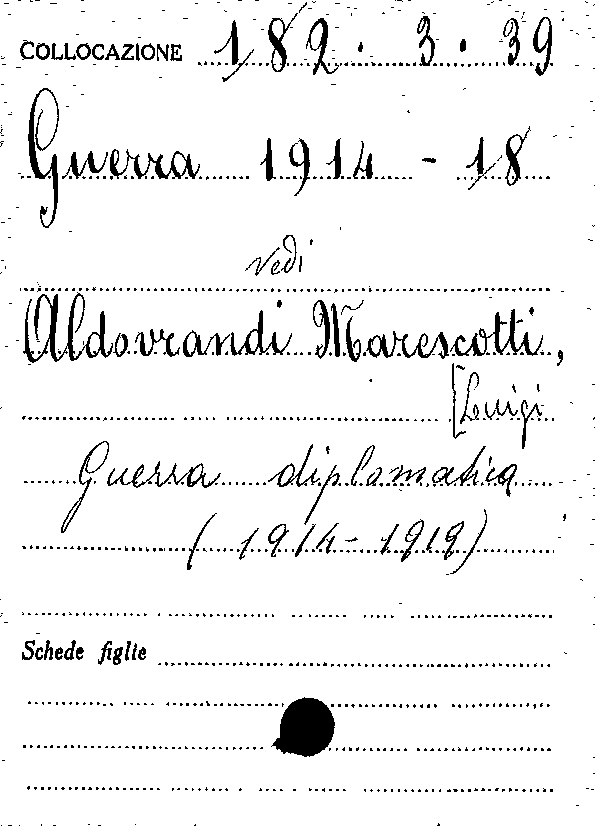 COLLOCAZIONE 182. 3. 39
Guerra 1914 - 18
vedi
Aldovrandi Marescotti,
[Luigi
Guerra diplomatica
(1914-1919)
Schede figlie